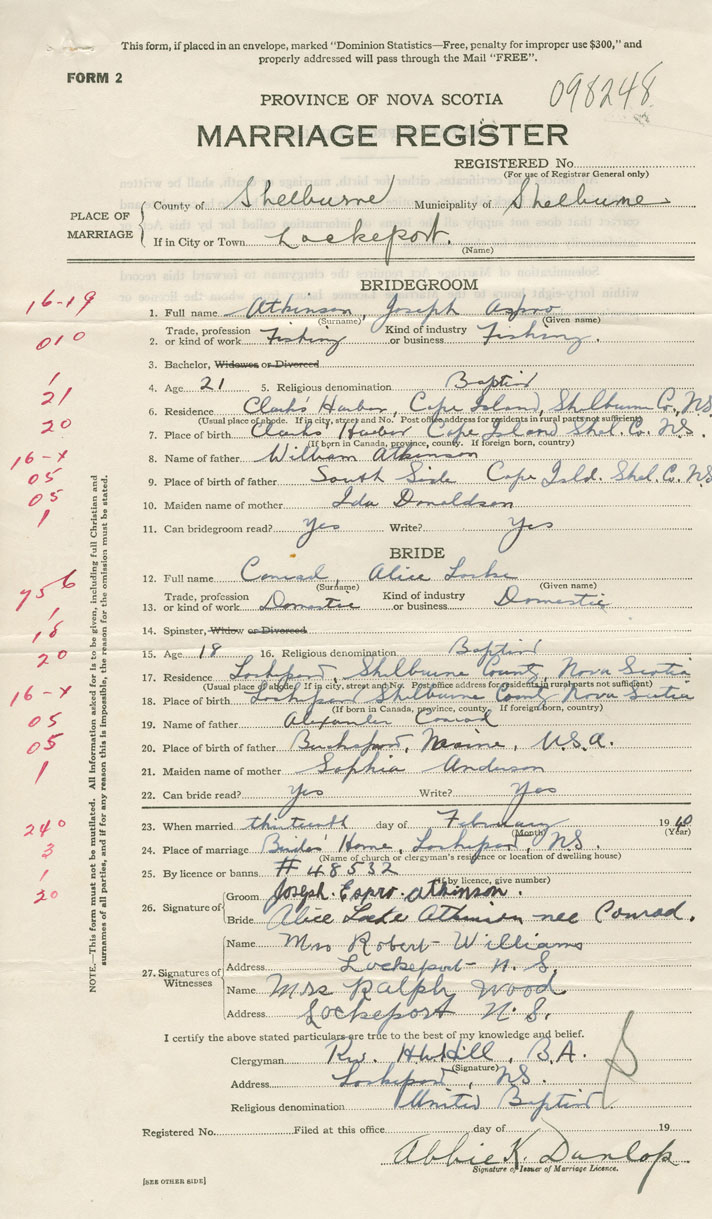 This form, if placed in an envelope, marked "Dominion Statistics—Free, penalty for improper use $300," and
properly addressed will pass through the Mail "FREE".
FORM 2
098248
PROVINCE OF NOVA SCOTIA
MARRIAGE REGISTER
REGISTERED No.
(For use of Registrar General only)
PLACE OF MARRIAGE
County of Shelburne Municipality of Shelburne
If in City or Town Lockeport.
(Name)
BRIDEGROOM
16-19
1. Full name Atkinson, Joseph Aspro
(Surname) (Given name)
010
2. Trade, profession or kind of work Fishing Kind of industry or business Fishing.
3. Bachelor, Widower or Divorced
1
4. Age 21 5. Religious denomination Baptist
21
6. Residence Clark's Harbor, Cape Island, Shelburne Co., NS
(Usual place of abode. If in city, street and No. Post office address for residents in rural parts not sufficient)
20
7. Place of birth Clarks Harbor Cape Island Shel. Co. N.S.
(If born in Canada, province, county. If foreign born, country)
16-x
8. Name of father William Atkinson
05
9. Place of birth of father South Side Cape Isld. Shel. Co. NS
05
10. Maiden name of mother Ida Donaldson
1
11. Can bridegroom read? Yes Write? Yes
BRIDE
12. Full name Conrad, Alice Locke
(Surname) (Given name)
756
13. Trade, profession or kind of work Domestic Kind of industry or business Domestic
1
14. Spinster, Widow or Divorced
18
15. Age 18 16. Religious denomination Baptist
20
17. Residence Lockeport, Shelburne County, Nova Scotia
(Usual place of abode. If in city, street and No. Post office address for residents in rural parts not sufficient)
16-x
18. Place of birth Lockeport Shelburne County Nova Scotia
(If born in Canada, province, county. If foreign born, country)
05
19. Name of father Alexander Conrad
05
20. Place of birth of father Maine, U.S.A.
1
21. Maiden name of mother Sophia Anderson
22. Can bride read? Yes Write? Yes
240
23. When married thirteenth day of February 1940
(Month) (Year)
3
24. Place of marriage Bride's Home, Lockeport, NS.
(Name of church or clergyman's residence or location of dwelling house)
1
25. By licence or banns # 48532
(If by licence, give number)
20
26. Signature of
Groom Joseph. Espro. Atkinson.
Bride Alice Locke Atkinson nee Conrad.
27. Signatures of Witnesses
Name Mrs Robert Williams
Address Lockeport N.S.
Name Mrs Ralph Wood
Address Lockeport N.S.
I certify the above stated particulars are true to the best of my knowledge and belief.
Clergyman Rev. H. Hill, B.A.
(Signature)
Address Lockeport, NS.
Religious denomination United Baptist
Registered No. Filed at this office day of 19
Abbie K. Dunlop
Signature of Issuer of Marriage Licence.
[SEE OTHER SIDE]
NOTE.—This form must not be mutilated. All information asked for is to be given, including full Christian and
surnames of all parties, and if for any reason this is impossible, the reason for the omission must be stated.